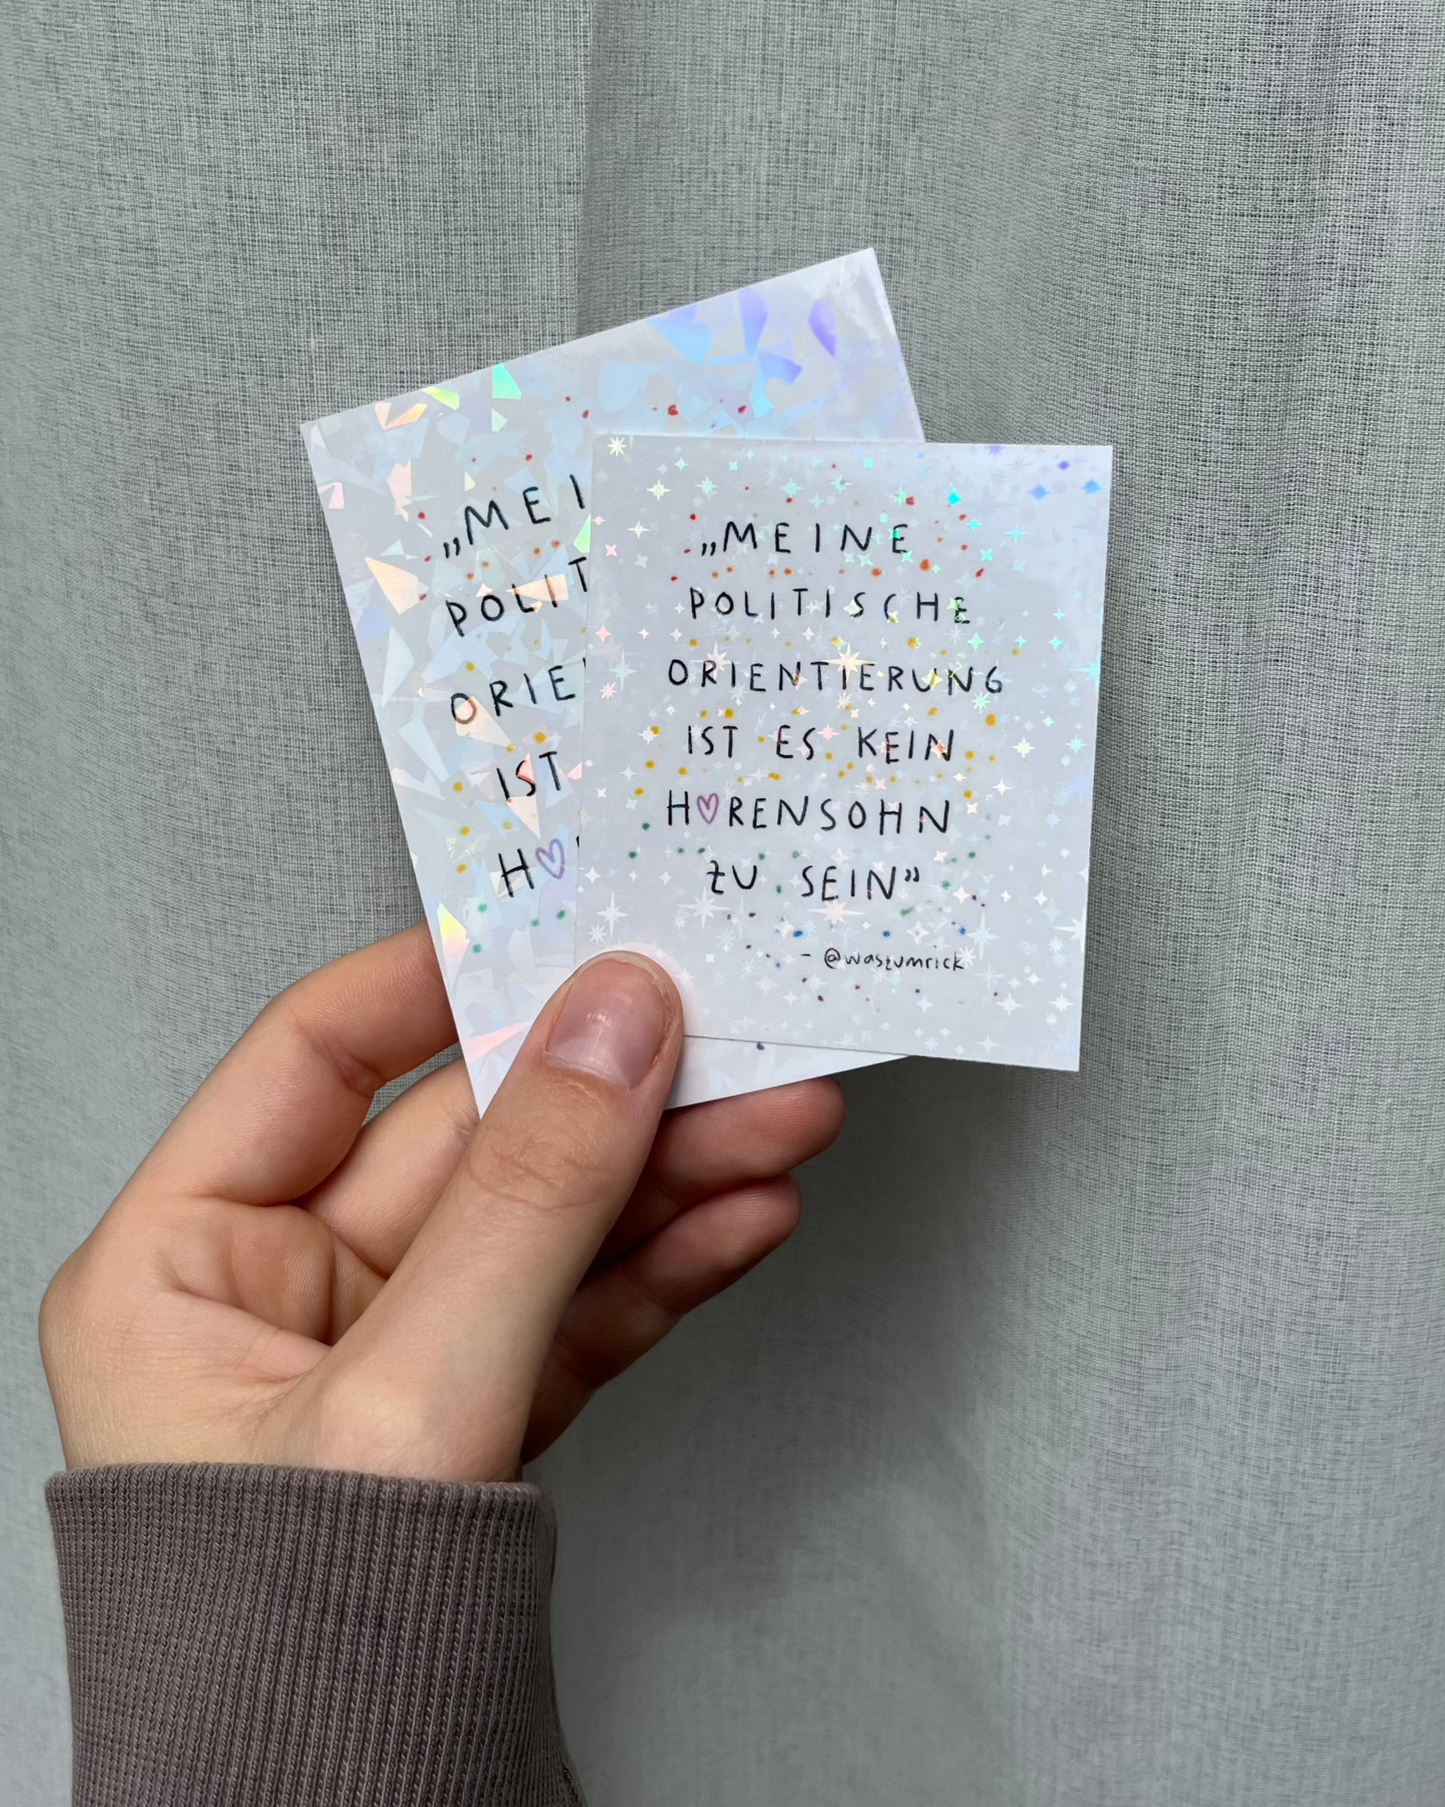 „MEI
POLIT
ORIE
IST
H♡
„MEINE
POLITISCHE
ORIENTIERUNG
IST ES KEIN
H♡RENSOHN
ZU SEIN”
- @waszumrick